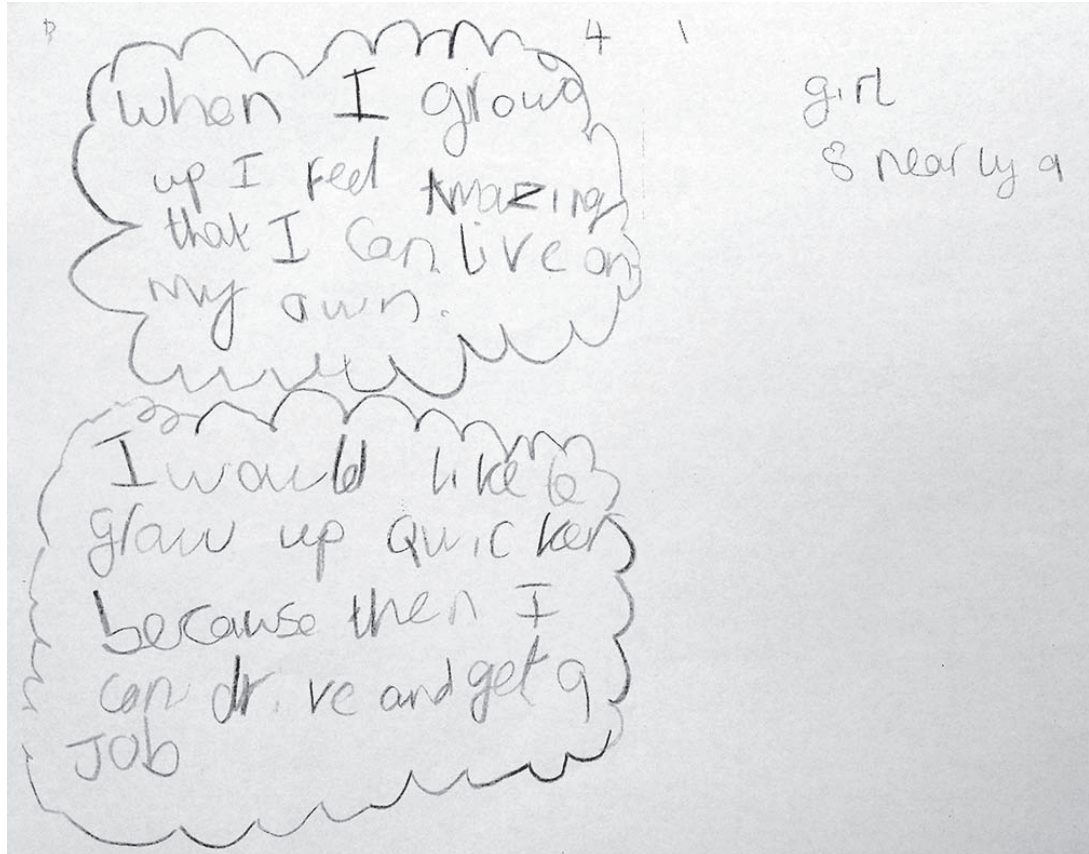 4 1
girl
8 nearly 9
when I growq
up I feel Amazing
that I can live on
my own.
I would like to
grow up quicker
because then I
can drive and get a
JOb